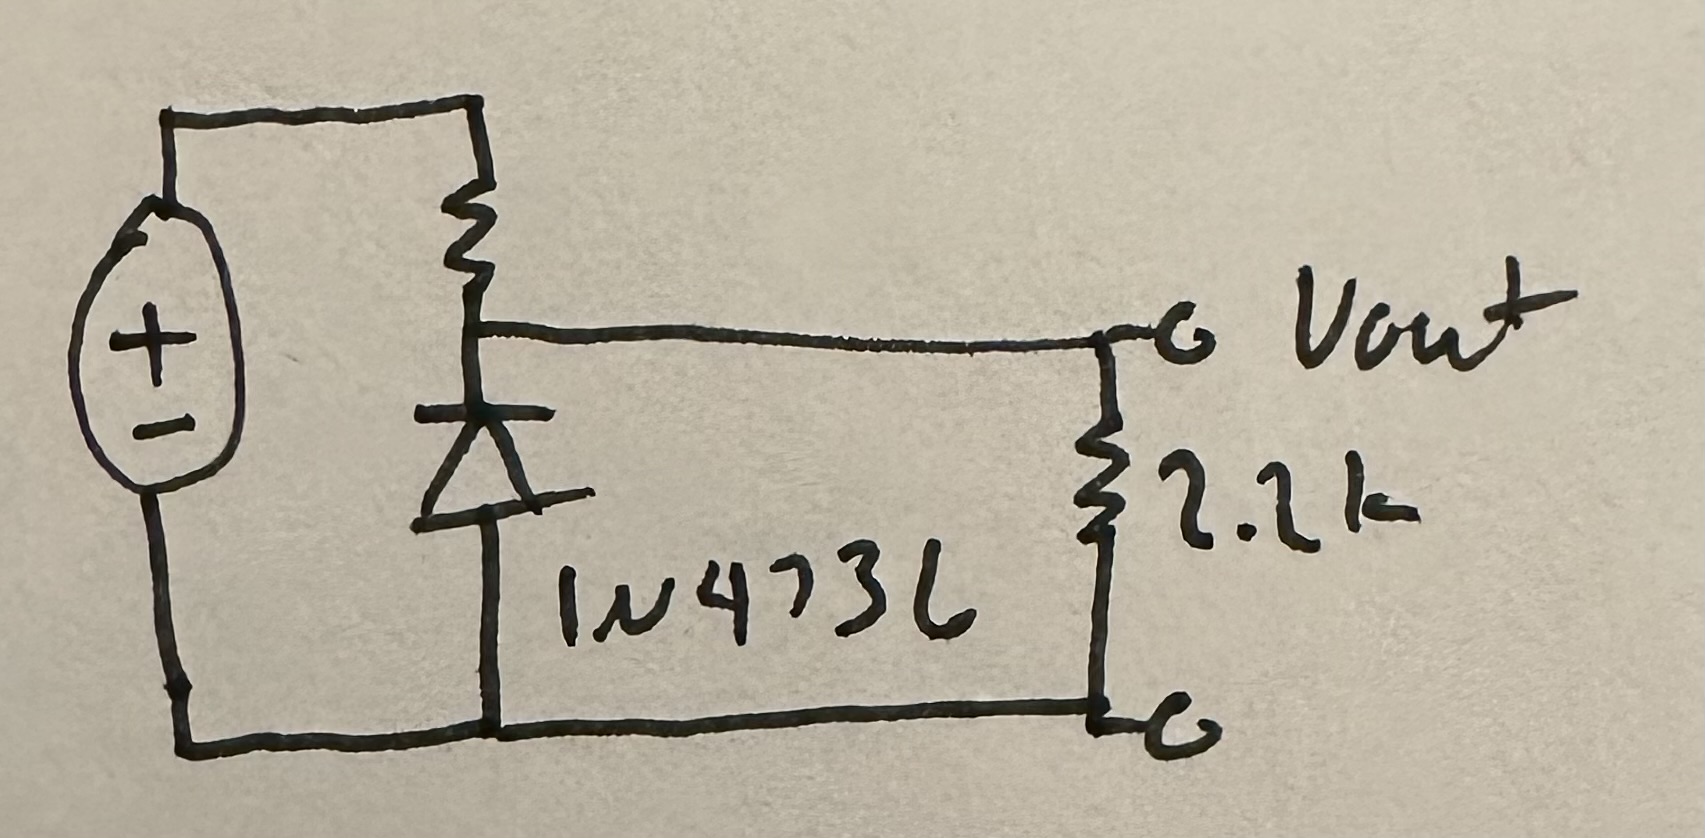 +
−
Vout
2.2k
1N4736